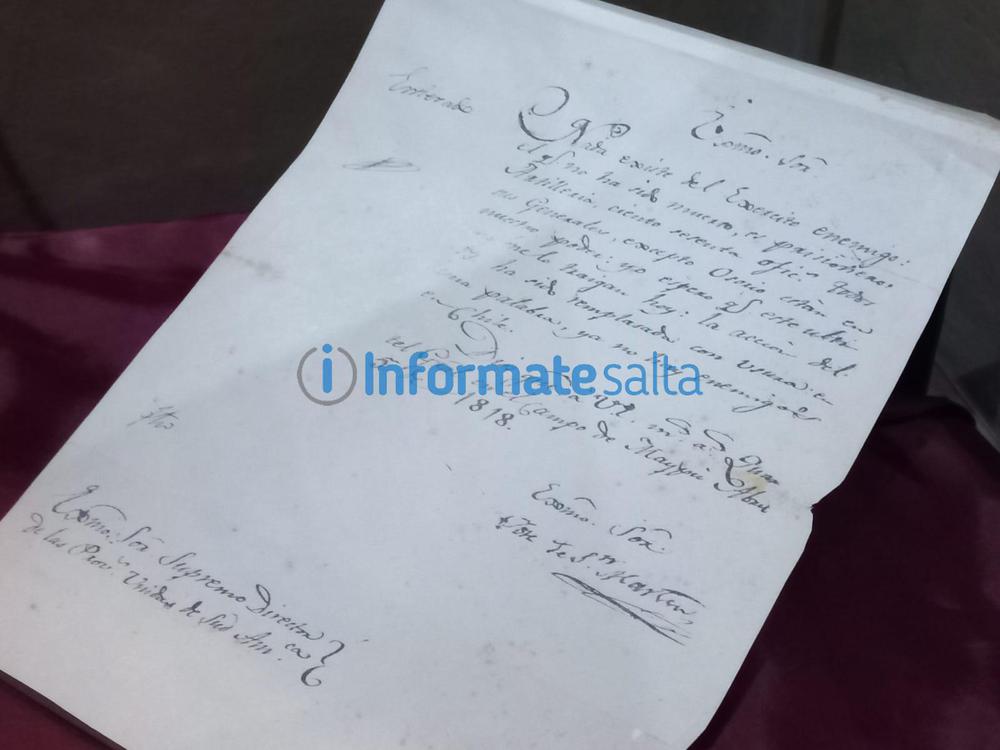 Enterado
Exmo. Sor.
Nada existe del Exercito enemigo:
el q.e no ha sido muerto, es prisionero.
Artilleria, ciento sesenta ofic.s todos
sus Generales, excepto Osorio estàn en
nuestro poder: yo espero q.e este ulti
me lo traigan hoy: la accion del
ha sido remplazada con usura: en
una palabra, ya no hay enemigos
en Chile.
Dios
V.E. m.s a.s
del
en el Campo de Maypu Abril
1818.
Exmo. Sor.
Jose de S.n Martin
Exmo. Sor Supremo Director
de las Prov.s Unidas de Sud Am.ca
informatesalta